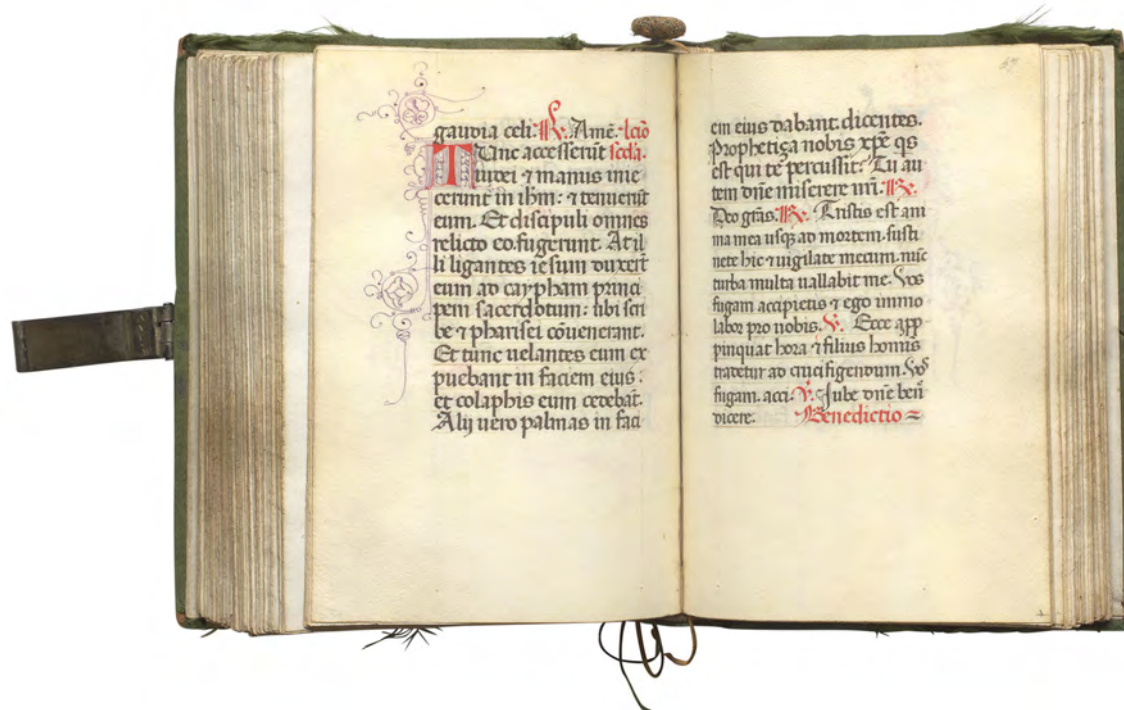 gaudia celi. ℟. Amē. lcio
Tunc accesserūt scda.
iudei ⁊ manus inie
cerunt in ihm: ⁊ tenuerūt
eum. Et discipuli omnes
relicto eo. fugerunt. At il
li ligantes iesum duxerūt
eum ad caypham princi
pem sacerdotum: sibi scri
be ⁊ pharisei cōuenerant.
Et tunc uelantes eum ex
puebant in faciem eius:
et colaphis eum cedebāt.
Alij uero palmas in faci
em eius dabant. dicentes.
Prophetiça nobis xpē qs
est qui te percussit: Tu au
tem dn̄e miserere nr̄i. ℟.
Deo grās. ℟. Tristis est ani
ma mea usqꝫ ad mortem. susti
nete hic ⁊ uigilate mecum. nūc
turba multa uallabit me. Vos
fugam accipietis ⁊ ego immo
labor pro nobis. ℣. Ecce app
pinquat hora ⁊ filius homīs
tradetur ad crucifigendum. Vos
fugam. acci. ℣. Jube dn̄e ben̄
dicere. Benedictio